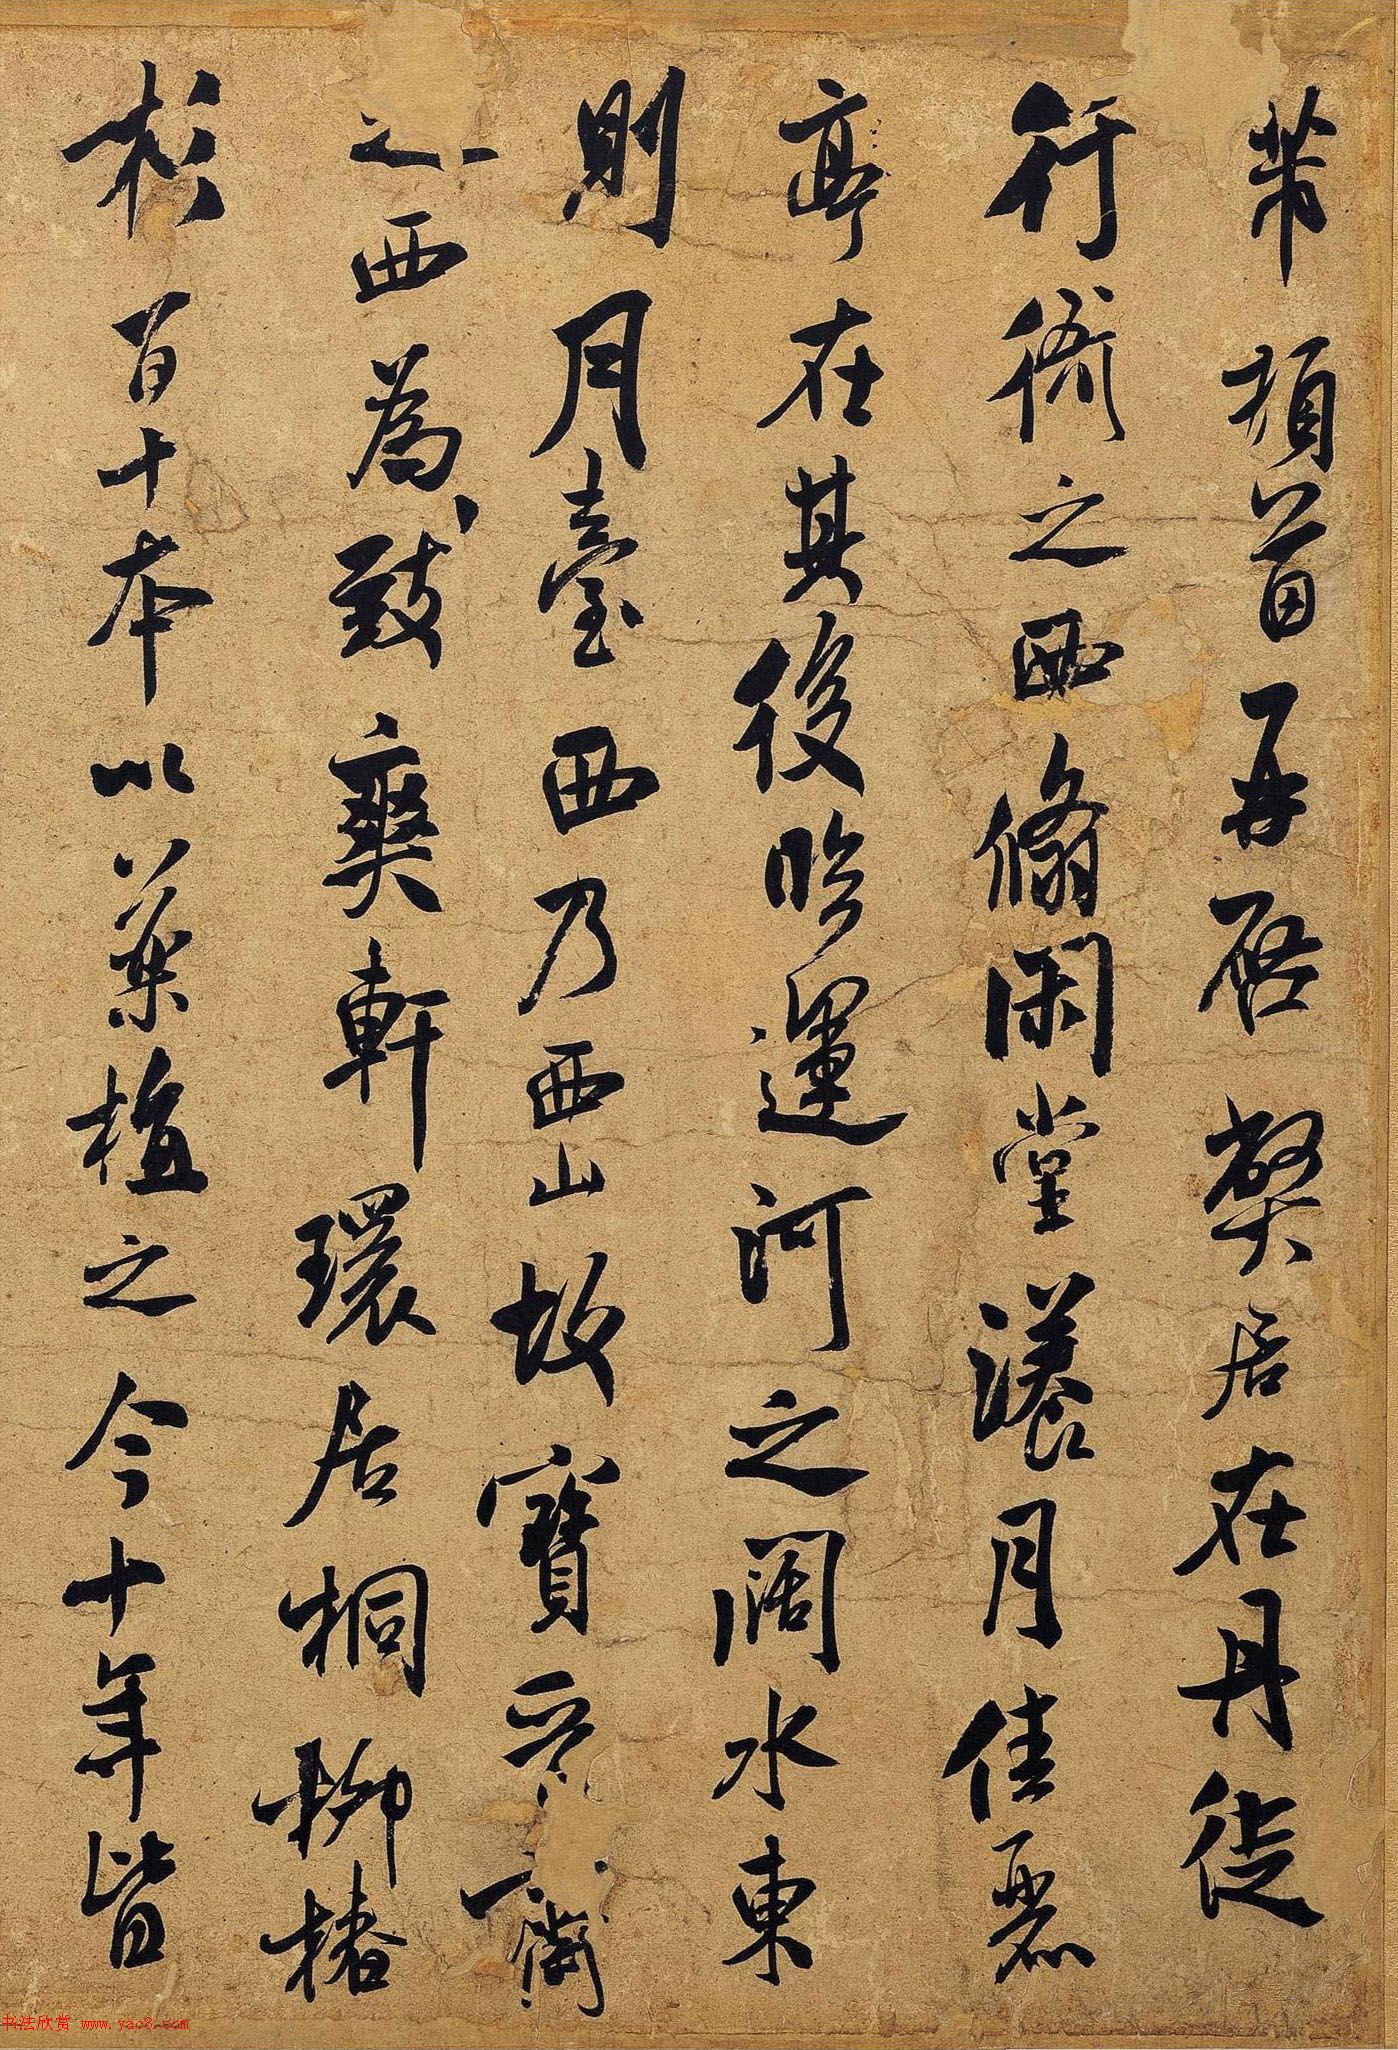 芾頓首再啟弊居在丹徒
行衙之西翛閑堂瀁月佳麗
亭在其後臨運河之闊水東
則月臺西乃西山故寶晉齋
之西為致爽軒環居桐柳椿
杉百十本以葉植之今十年皆
书法欣赏 www.yac8.com